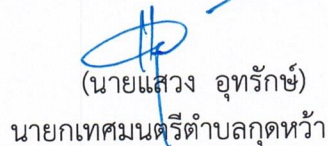 (นายแสวง อุทรักษ์)
นายกเทศมนตรีตำบลกุดหว้า